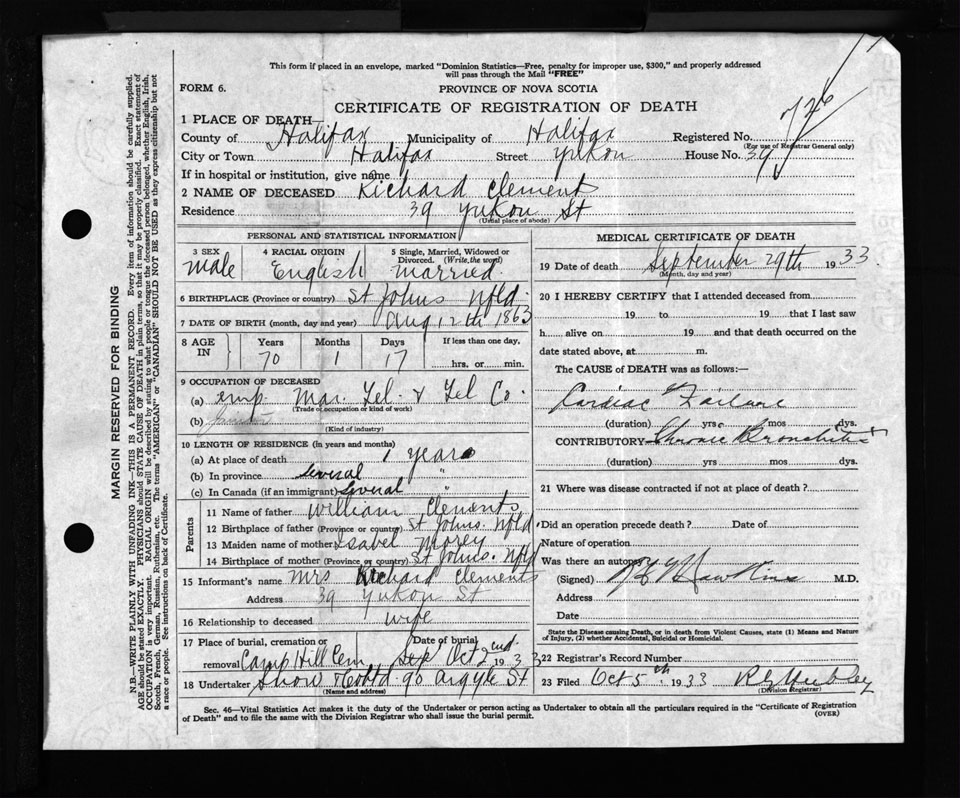 This form if placed in an envelope, marked "Dominion Statistics—Free, penalty for improper use, $300," and properly addressed
will pass through the Mail "FREE"
FORM 6.
PROVINCE OF NOVA SCOTIA
CERTIFICATE OF REGISTRATION OF DEATH
1 PLACE OF DEATH
County of Halifax Municipality of Halifax Registered No. 726
(For use of Registrar General only)
City or Town Halifax Street Yukon House No. 39
If in hospital or institution, give name
2 NAME OF DECEASED Richard Clements
Residence 39 Yukon St
(Usual place of abode)
PERSONAL AND STATISTICAL INFORMATION
3 SEX 4 RACIAL ORIGIN 5 Single, Married, Widowed or Divorced. (Write the word)
Male English Married.
6 BIRTHPLACE (Province or country) St Johns Nfld.
7 DATE OF BIRTH (month, day and year) Aug 12th 1863
8 AGE IN Years Months Days If less than one day,
70 1 17 hrs. or min.
9 OCCUPATION OF DECEASED
(a) emp. Mar. Tel. & Tel Co.
(Trade or occupation or kind of work)
(b)
(Kind of industry)
10 LENGTH OF RESIDENCE (in years and months)
(a) At place of death 1 years
(b) In province Several "
(c) In Canada (if an immigrant) Several "
Parents
11 Name of father William Clements
12 Birthplace of father (Province or country) St Johns. Nfld.
13 Maiden name of mother Isabel Morey
14 Birthplace of mother (Province or country) St Johns. Nfld
15 Informant's name Mrs Richard Clements
Address 39 Yukon St
16 Relationship to deceased wife
17 Place of burial, cremation or removal Camp Hill Cem Date of burial Sep Oct 2nd 1933
18 Undertaker Snow & Co Ltd 90 Argyle St
(Name and address)
MEDICAL CERTIFICATE OF DEATH
19 Date of death September 29th 1933.
(Month, day and year)
20 I HEREBY CERTIFY that I attended deceased from
19 to 19 that I last saw
h alive on 19 and that death occurred on the
date stated above, at m.
The CAUSE of DEATH was as follows:—
Cardiac Failure
(duration) yrs mos dys.
CONTRIBUTORY Chronic Bronchitis
(duration) yrs mos dys.
21 Where was disease contracted if not at place of death?
Did an operation precede death? Date of
Nature of operation
Was there an autopsy
(Signed) Hawkins M.D.
Address
Date
State the Disease causing Death, or in death from Violent Causes, state (1) Means and Nature of Injury, (2) whether Accidental, Suicidal or Homicidal.
22 Registrar's Record Number
23 Filed Oct 5th 1933
(Division Registrar)
Sec. 46—Vital Statistics Act makes it the duty of the Undertaker or person acting as Undertaker to obtain all the particulars required in the "Certificate of Registration
of Death" and to file the same with the Division Registrar who shall issue the burial permit.
(OVER)
MARGIN RESERVED FOR BINDING
N.B.—WRITE PLAINLY WITH UNFADING INK—THIS IS A PERMANENT RECORD. Every item of information should be carefully supplied.
AGE should be stated EXACTLY. PHYSICIANS should STATE CAUSE OF DEATH in plain terms, so that it may be properly classified. Exact statement of
OCCUPATION is very important. RACIAL ORIGIN will be described by stating to what people or tongue the deceased person belonged, whether English, Irish,
Scotch, French, German, Russian, Ruthenian, etc. The terms "AMERICAN" or "CANADIAN" SHOULD NOT BE USED as they express citizenship but not
a race or people. See instructions on back of Certificate.